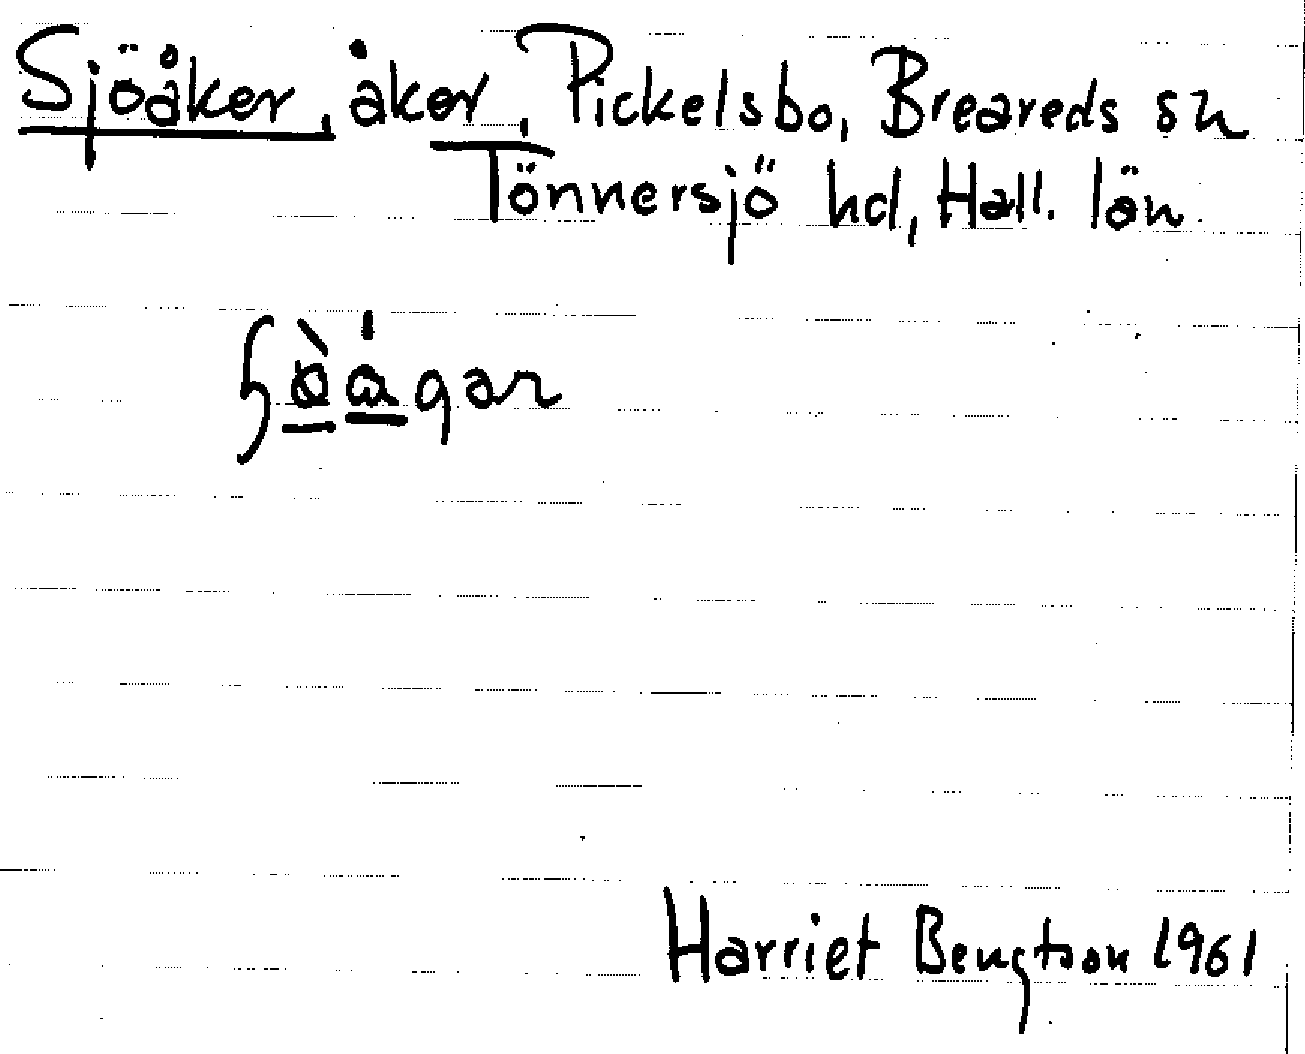 Sjöåker, åker, Pickelsbo, Breareds sn
Tönnersjö hd, Hall. län.
Harriet Bengtson 1961